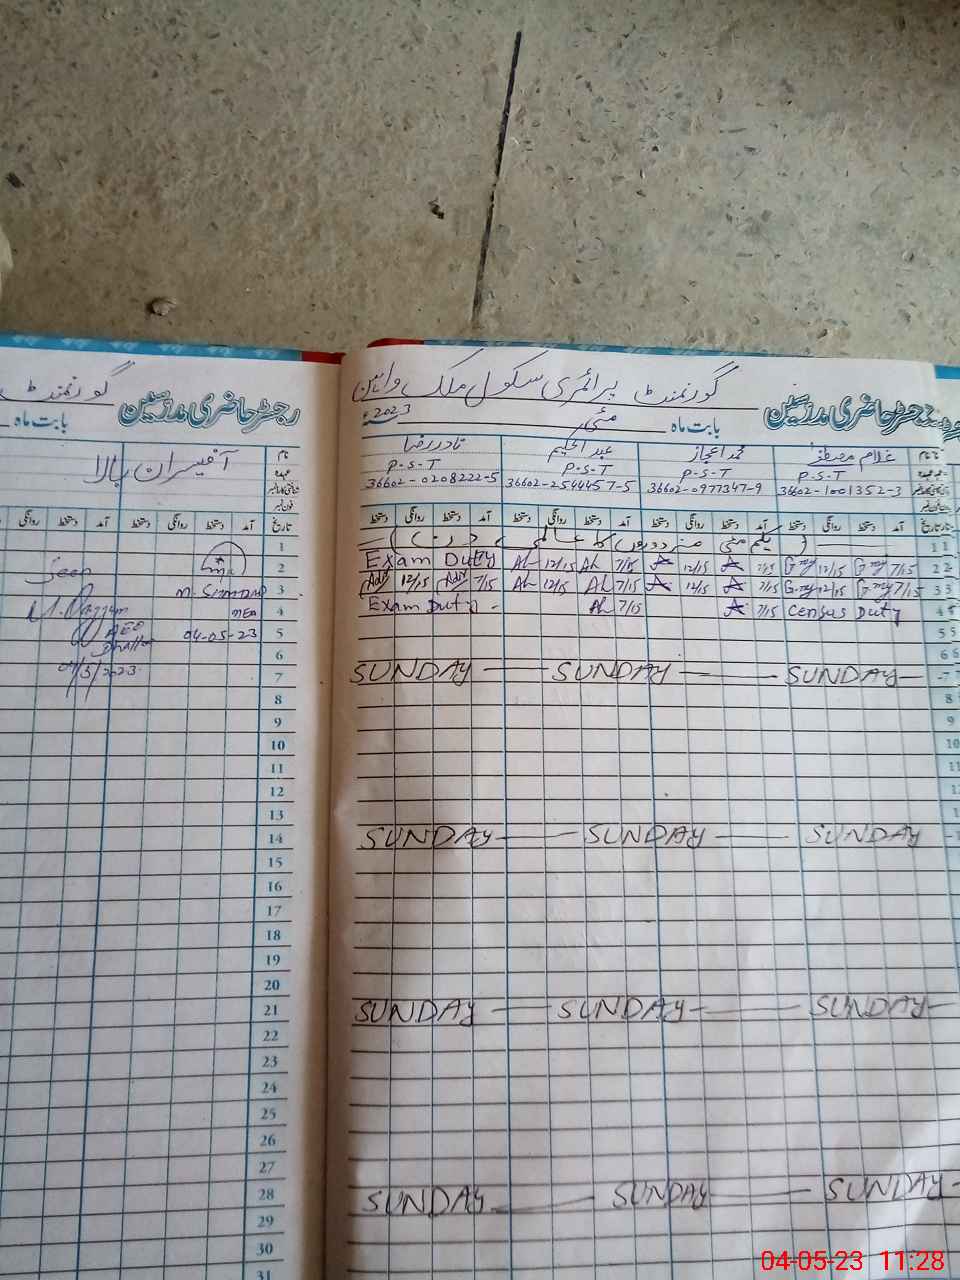 گورنمنٹ پرائمری سکول ملک
رجسٹر حاضری مدرسین
بابت ماہ مئی 2023ء
نام غلام مصطفیٰ محمد اعجاز عبدالحکیم نادر رضا
عہدہ P.S.T P.S.T P.S.T P.S.T
36602-1001352-3 36602-0977347-9 36602-2544457-5 36602-0208222-5
تاریخ آمد دستخط روانگی دستخط آمد دستخط روانگی دستخط آمد دستخط روانگی دستخط آمد دستخط روانگی دستخط
1 (یکم مئی مزدوروں کا عالمی دن)
2 Exam Duty 12/15 7/15 12/15 7/15 12/15 7/15
3 12/15 7/15 12/15 7/15 12/15 7/15 12/15 7/15
4 Exam Duty 7/15 7/15 Census Duty
5
6
7 SUNDAY SUNDAY SUNDAY
8
9
10
11
SUNDAY SUNDAY SUNDAY
SUNDAY SUNDAY SUNDAY
SUNDAY SUNDAY SUNDAY
گورنمنٹ
رجسٹر حاضری مدرسین
بابت ماہ
نام آفیسران بالا
عہدہ
تاریخ آمد دستخط روانگی دستخط آمد دستخط روانگی
1
2
Seen
3
4
AEO
5 04-05-23
6
7
8
9
10
11
12
13
14
15
16
17
18
19
20
21
22
23
24
25
26
27
28
29
30
31
04-05-23 11:28